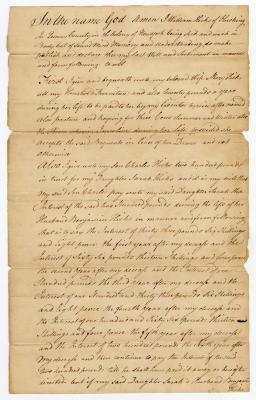 In the name God Amen I William Hicks of Flushing
In Queens County in the Colony of Newyork being sick and weak in
Body but of Sound Mind Memory and Understanding do make
publish and declare this my last Will and Testament in manner
and form following to wit
First I give and bequeath unto my beloved Wife Mary Hicks
all my Houshold Furniture and also twenty pounds a year
during her life to be paid to her by my Executor herein after named
also pasture and keeping for three Cows summer and Winter also
during her life provided she
accepts the said Bequests in lieu of her Dower and not
otherwise
Also I give unto my Son Charles Hicks two hundred pounds
in trust for my Daughter Sarah Hicks and it is my will that
my said Son Charles pay unto my said Daughter Sarah the
Interest of the said two Hundred pounds during the life of her
Husband Benjamin Hicks in manner and form following
that is to say the Interest of thirty three pounds Six Shillings
and Eight pence the first year after my decease and the
Interest of Sixty Six pounds thirteen Shillings and four pence
the second year after my decease and the Interest of one
Hundred pounds the third year after my decease and the
Interest of one Hundred and thirty three pounds Six Shillings
and Eight pence the fourth year after my decease and
the Interest of one hundred and Sixty Six pounds thirteen
Shillings and four pence the fifth year after my decease
and the Interest of two hundred pounds the sixth year after
my decease and then continue to pay the Interest of the said
two hundred pounds till he shall have paid it away as herein
directed but if my said Daughter Sarah's Husband Benjamin
Hicks